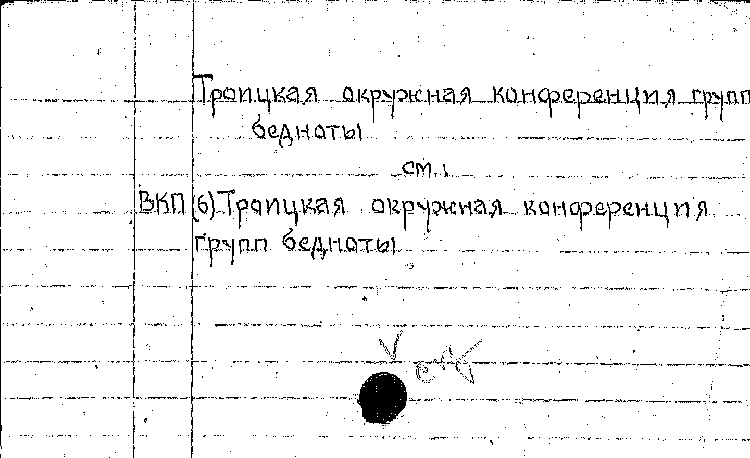 Троицкая окружная конференция групп
бедноты
см.
ВКП (б) Троицкая окружная конференция
групп бедноты